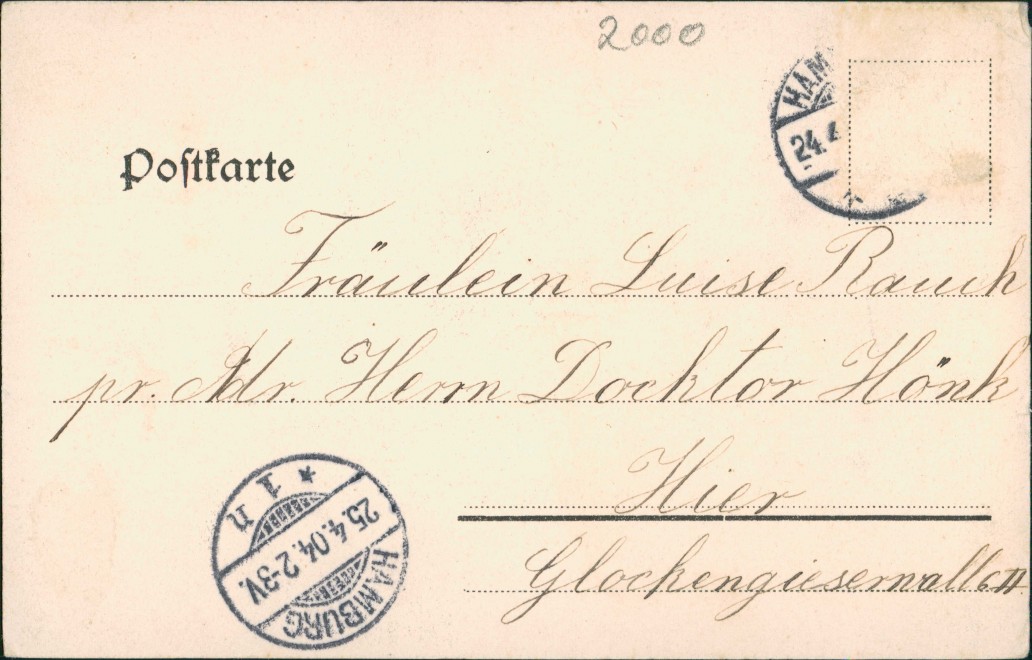 2000
HAM
24.4
Postkarte
Fräulein Luise Rauch
pr. Adr. Herrn Docktor Hönk
Hier
Glockengieserwall 6 III
* 1 n
25.4.04. 2-3V.
HAMBURG